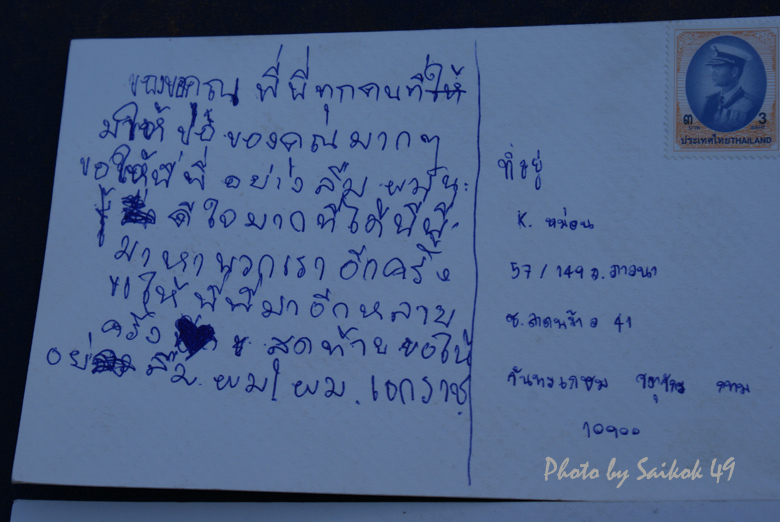 ขอขอบคุณ พี่พี่ทุกคนที่ให้
ของคุณมากๆ
ขอให้พี่พี่อย่างลืมผมนะ
ดีใจมากที่ได้พี่พี่
มาหาพวกเราอีกครั้ง
ขอให้พี่พี่มาอีกหลาย
ครั้ง สุดท้ายขอให้
อย่า ลืม ผม ผม เอกราช
๓ บาท 3 BAHT
ประเทศไทย THAILAND
ที่อยู่
K. หม่อน
57/149 ถ.ภาวนา
ซ.ลาดพร้าว 41
จันทรเกษม จตุจักร กทม
10900
Photo by Saikok 49